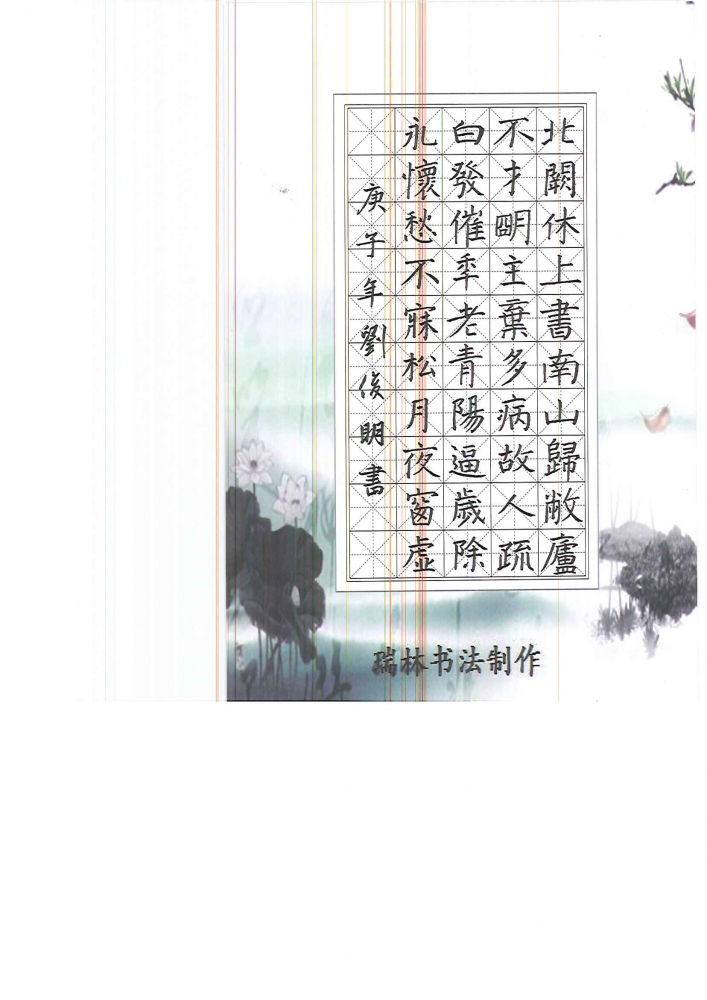 北闕休上書南山歸敝廬
不才明主棄多病故人疏
白發催年老青陽逼歲除
永懷愁不寐松月夜窗虛
庚子年劉俊明書
瑞林书法制作